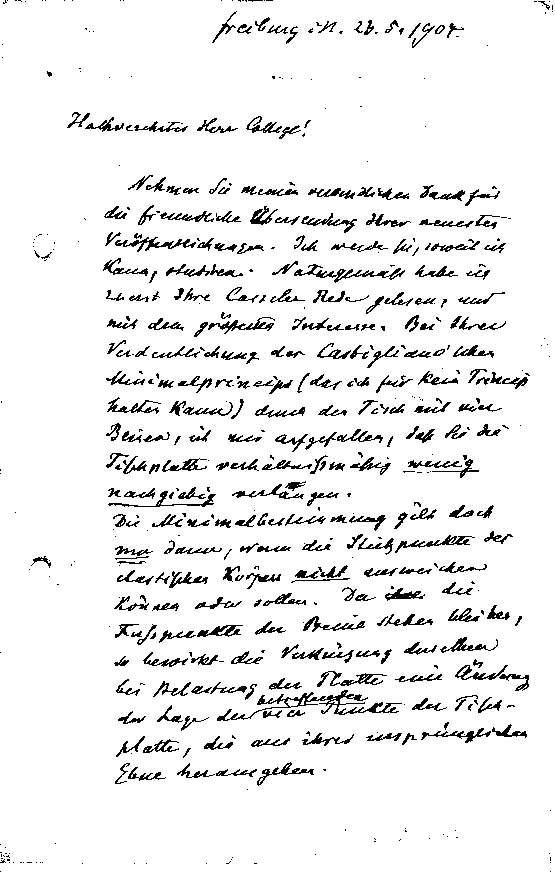 Freiburg i/B. 23.5.1904.
Hochverehrter Herr College!
Nehmen Sie meinen verbindlichen Dank für
die freundliche Übersendung Ihrer neuesten
Veröffentlichungen. Ich werde sie, soweit ich
kann, studiren. Naturgemäß habe ich
zuerst Ihre Casseler Rede gelesen, und
mit dem größten Interesse. Bei Ihrer
Verdeutlichung des Castigliano'schen
Minimalprincips (das ich für kein Princip
halten kann) durch den Tisch mit vier
Beinen, ist mir aufgefallen, daß Sie die
Tischplatte verhältnißmäßig wenig
nachgiebig verlangen.
Die Minimalbestimmung gilt doch
nur dann, wenn die Stützpunkte des
elastischen Körpers nicht ausweichen
können oder sollen. Da die
Fusspunkte der Beine stehen bleiben,
so bewirkt die Verkürzung derselben
bei Belastung der Platte eine Änderung
der Lage der betreffenden vier Punkte der Tisch-
platte, die aus ihrer ursprünglichen
Ebne herausgehen.